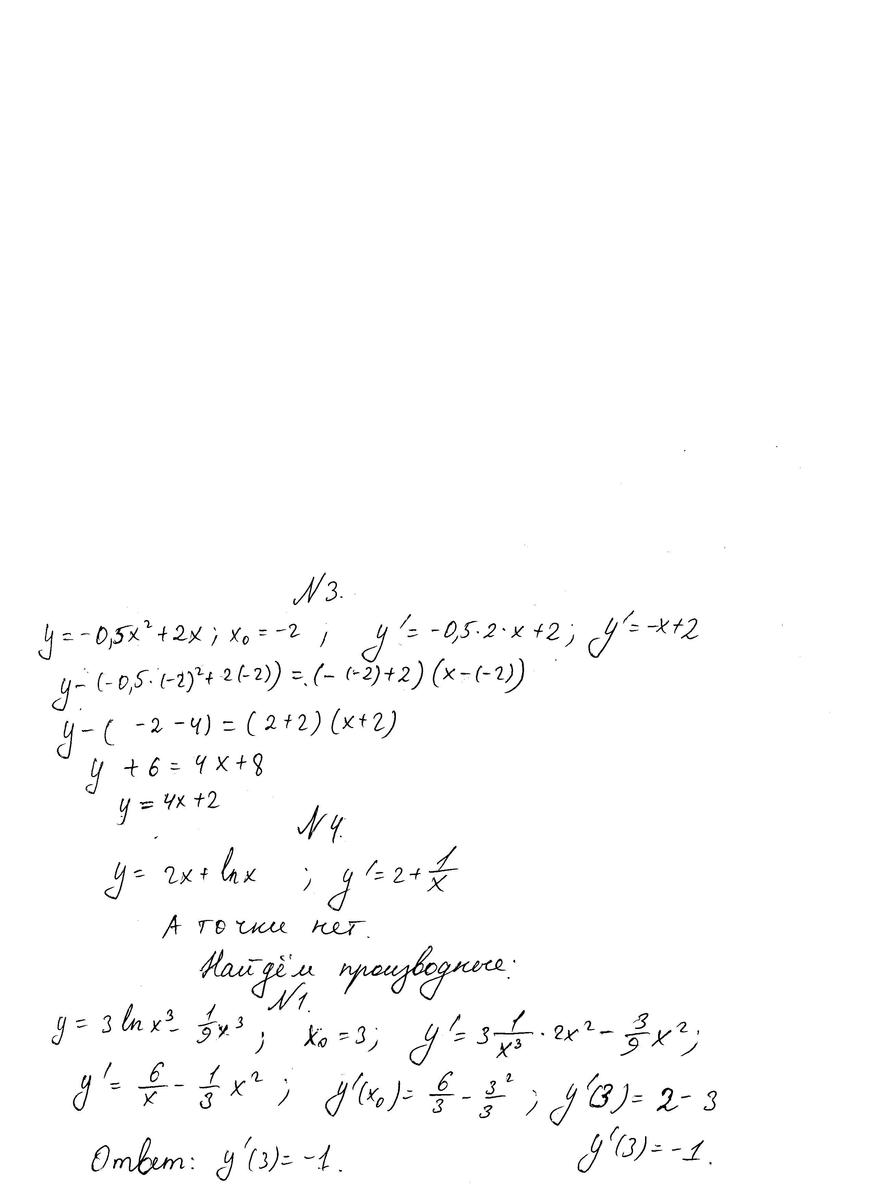 N3.
y = -0,5x² + 2x ; x₀ = -2 ; y' = -0,5·2·x + 2 ; y' = -x+2
y - (-0,5·(-2)² + 2(-2)) = (-(-2)+2)(x-(-2))
y - ( -2 -4) = (2+2)(x+2)
y + 6 = 4x+8
y = 4x+2
N4.
y = 2x + ln x ; y' = 2 + 1/x
А точки нет.
Найдём производные:
N1.
y = 3 ln x³ - 1/9 x³ ; x₀ = 3; y' = 3 1/x³ · 2x² - 3/9 x²;
y' = 6/x - 1/3 x² ; y'(x₀) = 6/3 - 3²/3 ; y'(3) = 2 - 3
Ответ: y'(3) = -1. y'(3) = -1.